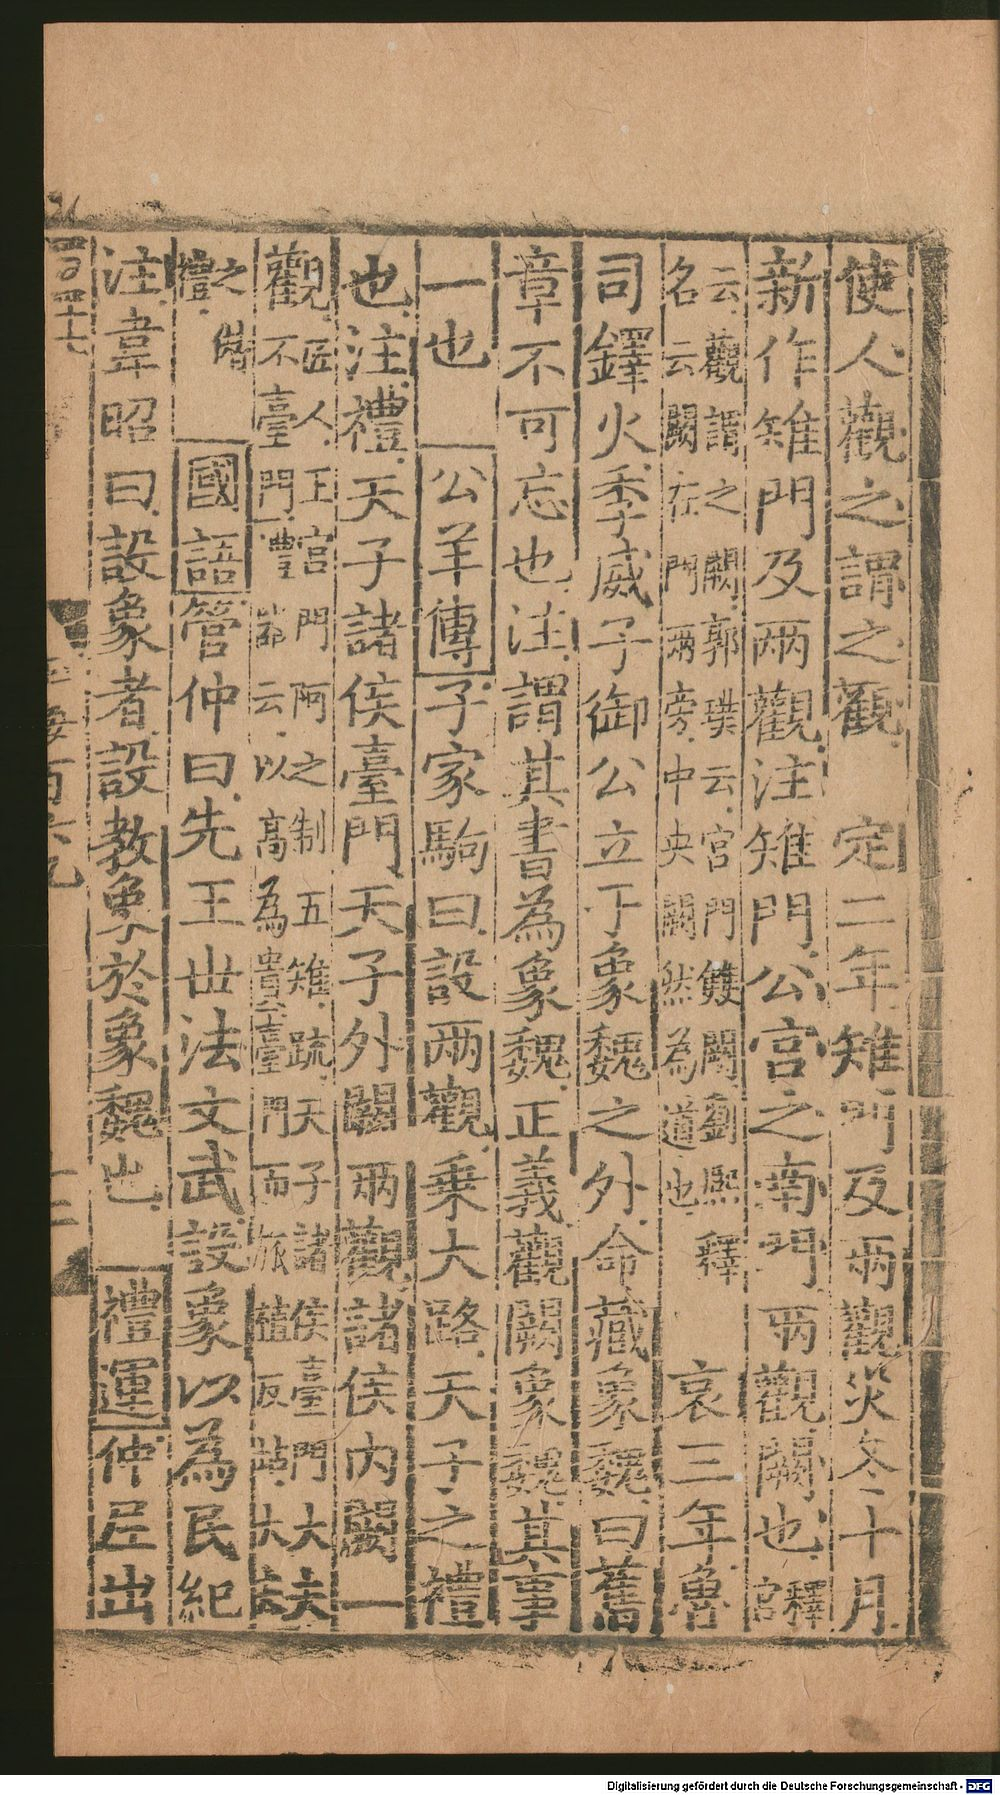 使人觀之謂之觀　定二年雉門及兩觀災冬十月
新作雉門及兩觀注雉門公宮之南門兩觀闕也釋宮
云觀謂之闕郭璞云宮門雙闕劉熙釋
名云闕在門兩旁中央闕然為道也
哀三年魯
司鐸火季威子御公立于象魏之外命藏象魏曰舊
章不可忘也注謂其書為象魏正義觀闕象魏其事
一也 公羊傳 子家駒曰設兩觀乘大路天子之禮
也注禮天子諸侯臺門天子外闕兩觀諸侯內闕一
觀
匠人王宮門阿之制五雉疏天子諸侯臺門大夫
不臺門禮器云以高為貴臺門而旅植反坫大夫
之僭
禮
國語 管仲曰先王世法文武設象以為民紀
注韋昭曰設象者設教象於象魏也 禮運 仲尼出
四十七
百六九
十二
Digitalisierung gefördert durch die Deutsche Forschungsgemeinschaft - DFG